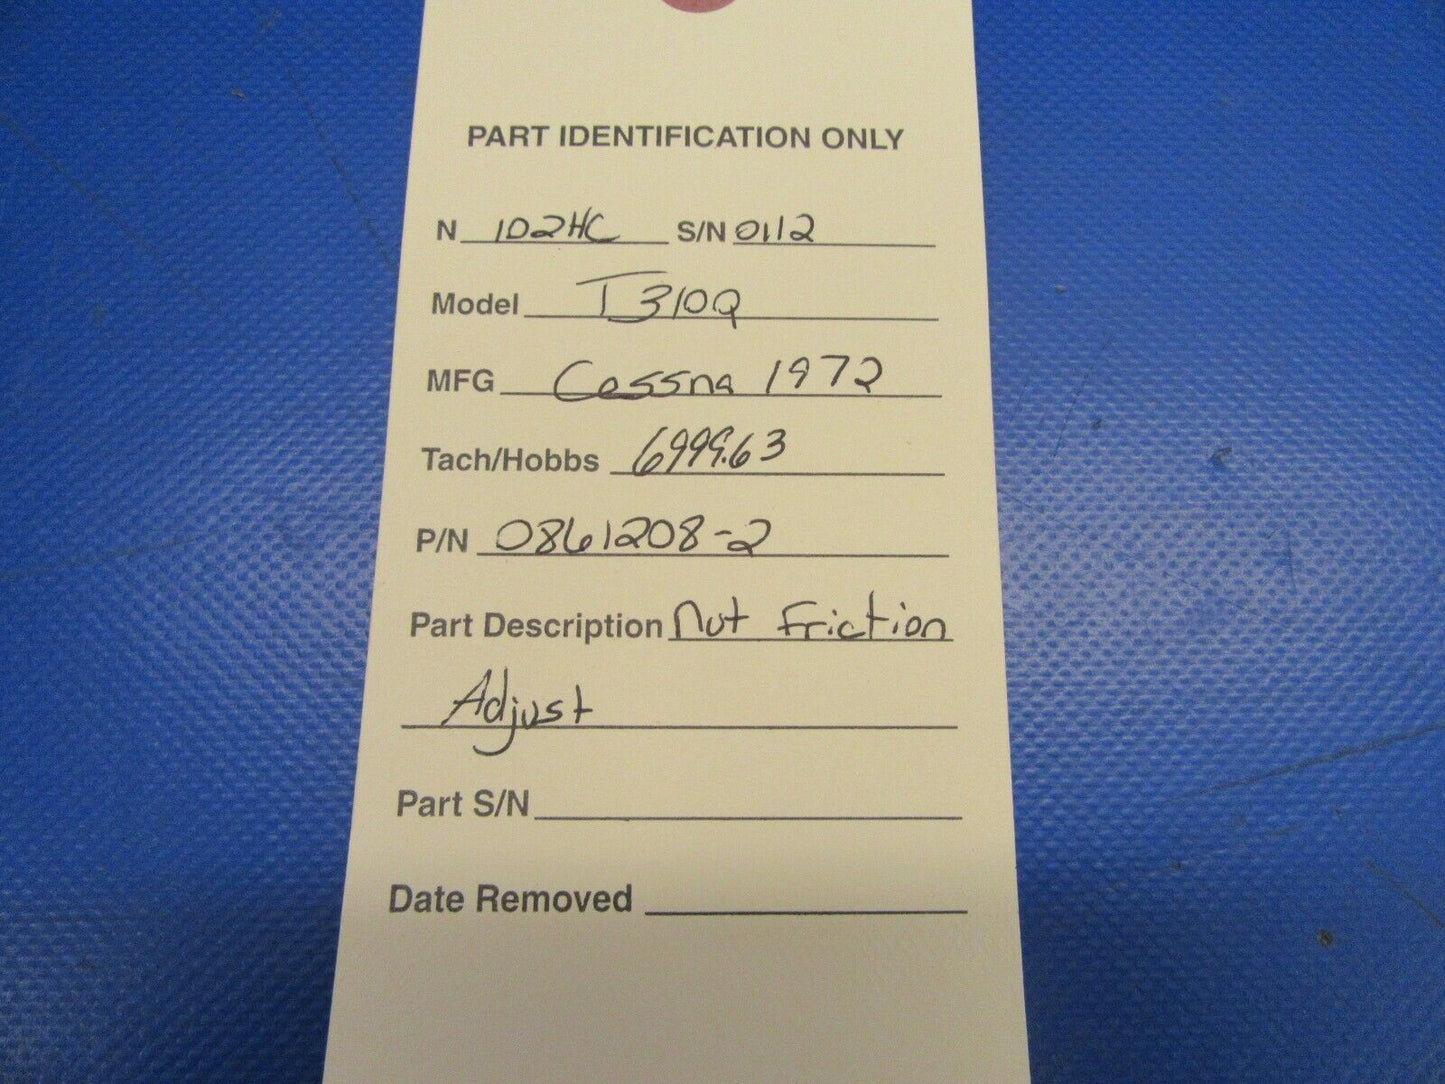 PART IDENTIFICATION ONLY
N 102HC S/N 0112
Model T310Q
MFG Cessna 1972
Tach/Hobbs 6999.63
P/N 0861208-2
Part Description Nut Friction
Adjust
Part S/N
Date Removed